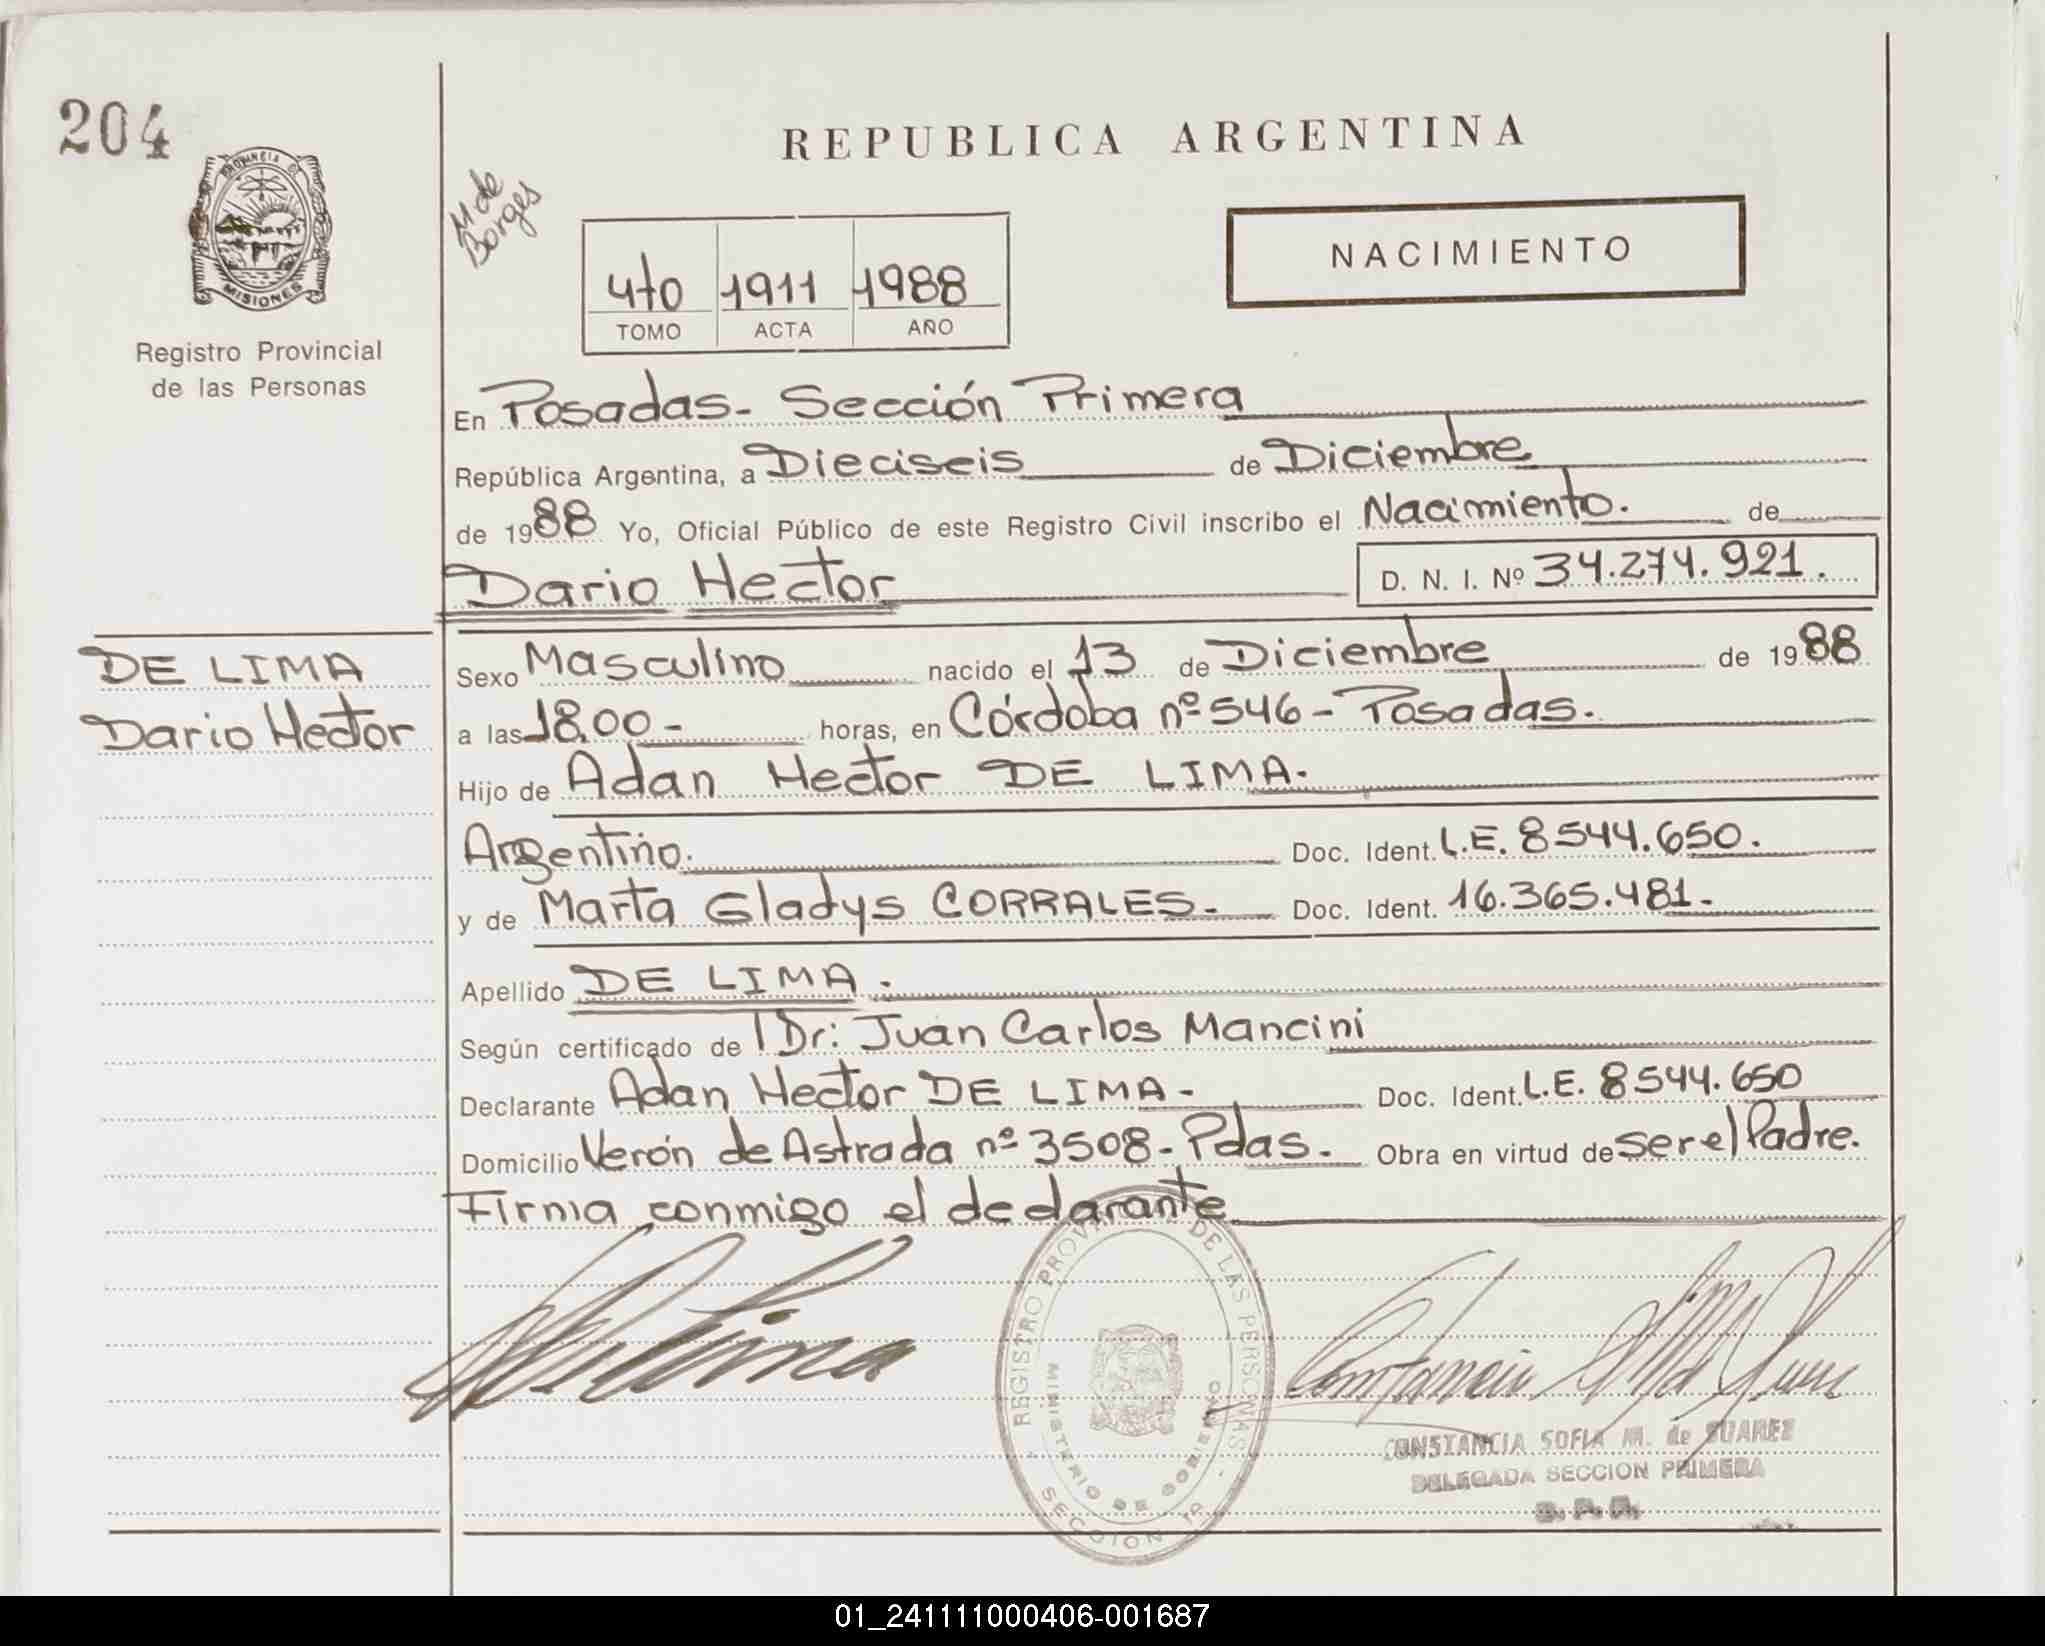 204
PROVINCIA DE
MISIONES
Registro Provincial
de las Personas
M de
Borges
REPUBLICA ARGENTINA
NACIMIENTO
4to 1911 1988
TOMO ACTA AÑO
En Posadas- Sección Primera
República Argentina, a Dieciseis de Diciembre
de 1988 Yo, Oficial Público de este Registro Civil inscribo el Nacimiento. de
Dario Hector D. N. I. Nº 34.274.921.
DE LIMA
Dario Hector
Sexo Masculino nacido el 13 de Diciembre de 1988
a las 18.00- horas, en Córdoba nº 546- Posadas.
Hijo de Adan Hector DE LIMA.
Argentino. Doc. Ident. L.E. 8544.650.
y de Marta Gladys CORRALES- Doc. Ident. 16.365.481-
Apellido DE LIMA.
Según certificado de Dr: Juan Carlos Mancini
Declarante Adan Hector DE LIMA- Doc. Ident. L.E. 8544.650
Domicilio Verón de Astrada nº 3508- Pdas. Obra en virtud de ser el Padre.
Firma conmigo el declarante
REGISTRO PROV DE LAS PERSONAS
MINISTERIO DE GOBIERNO
SECCION 1A
CONSTANCIA SOFIA M. de SUAREZ
DELEGADA SECCION PRIMERA
01_241111000406-001687